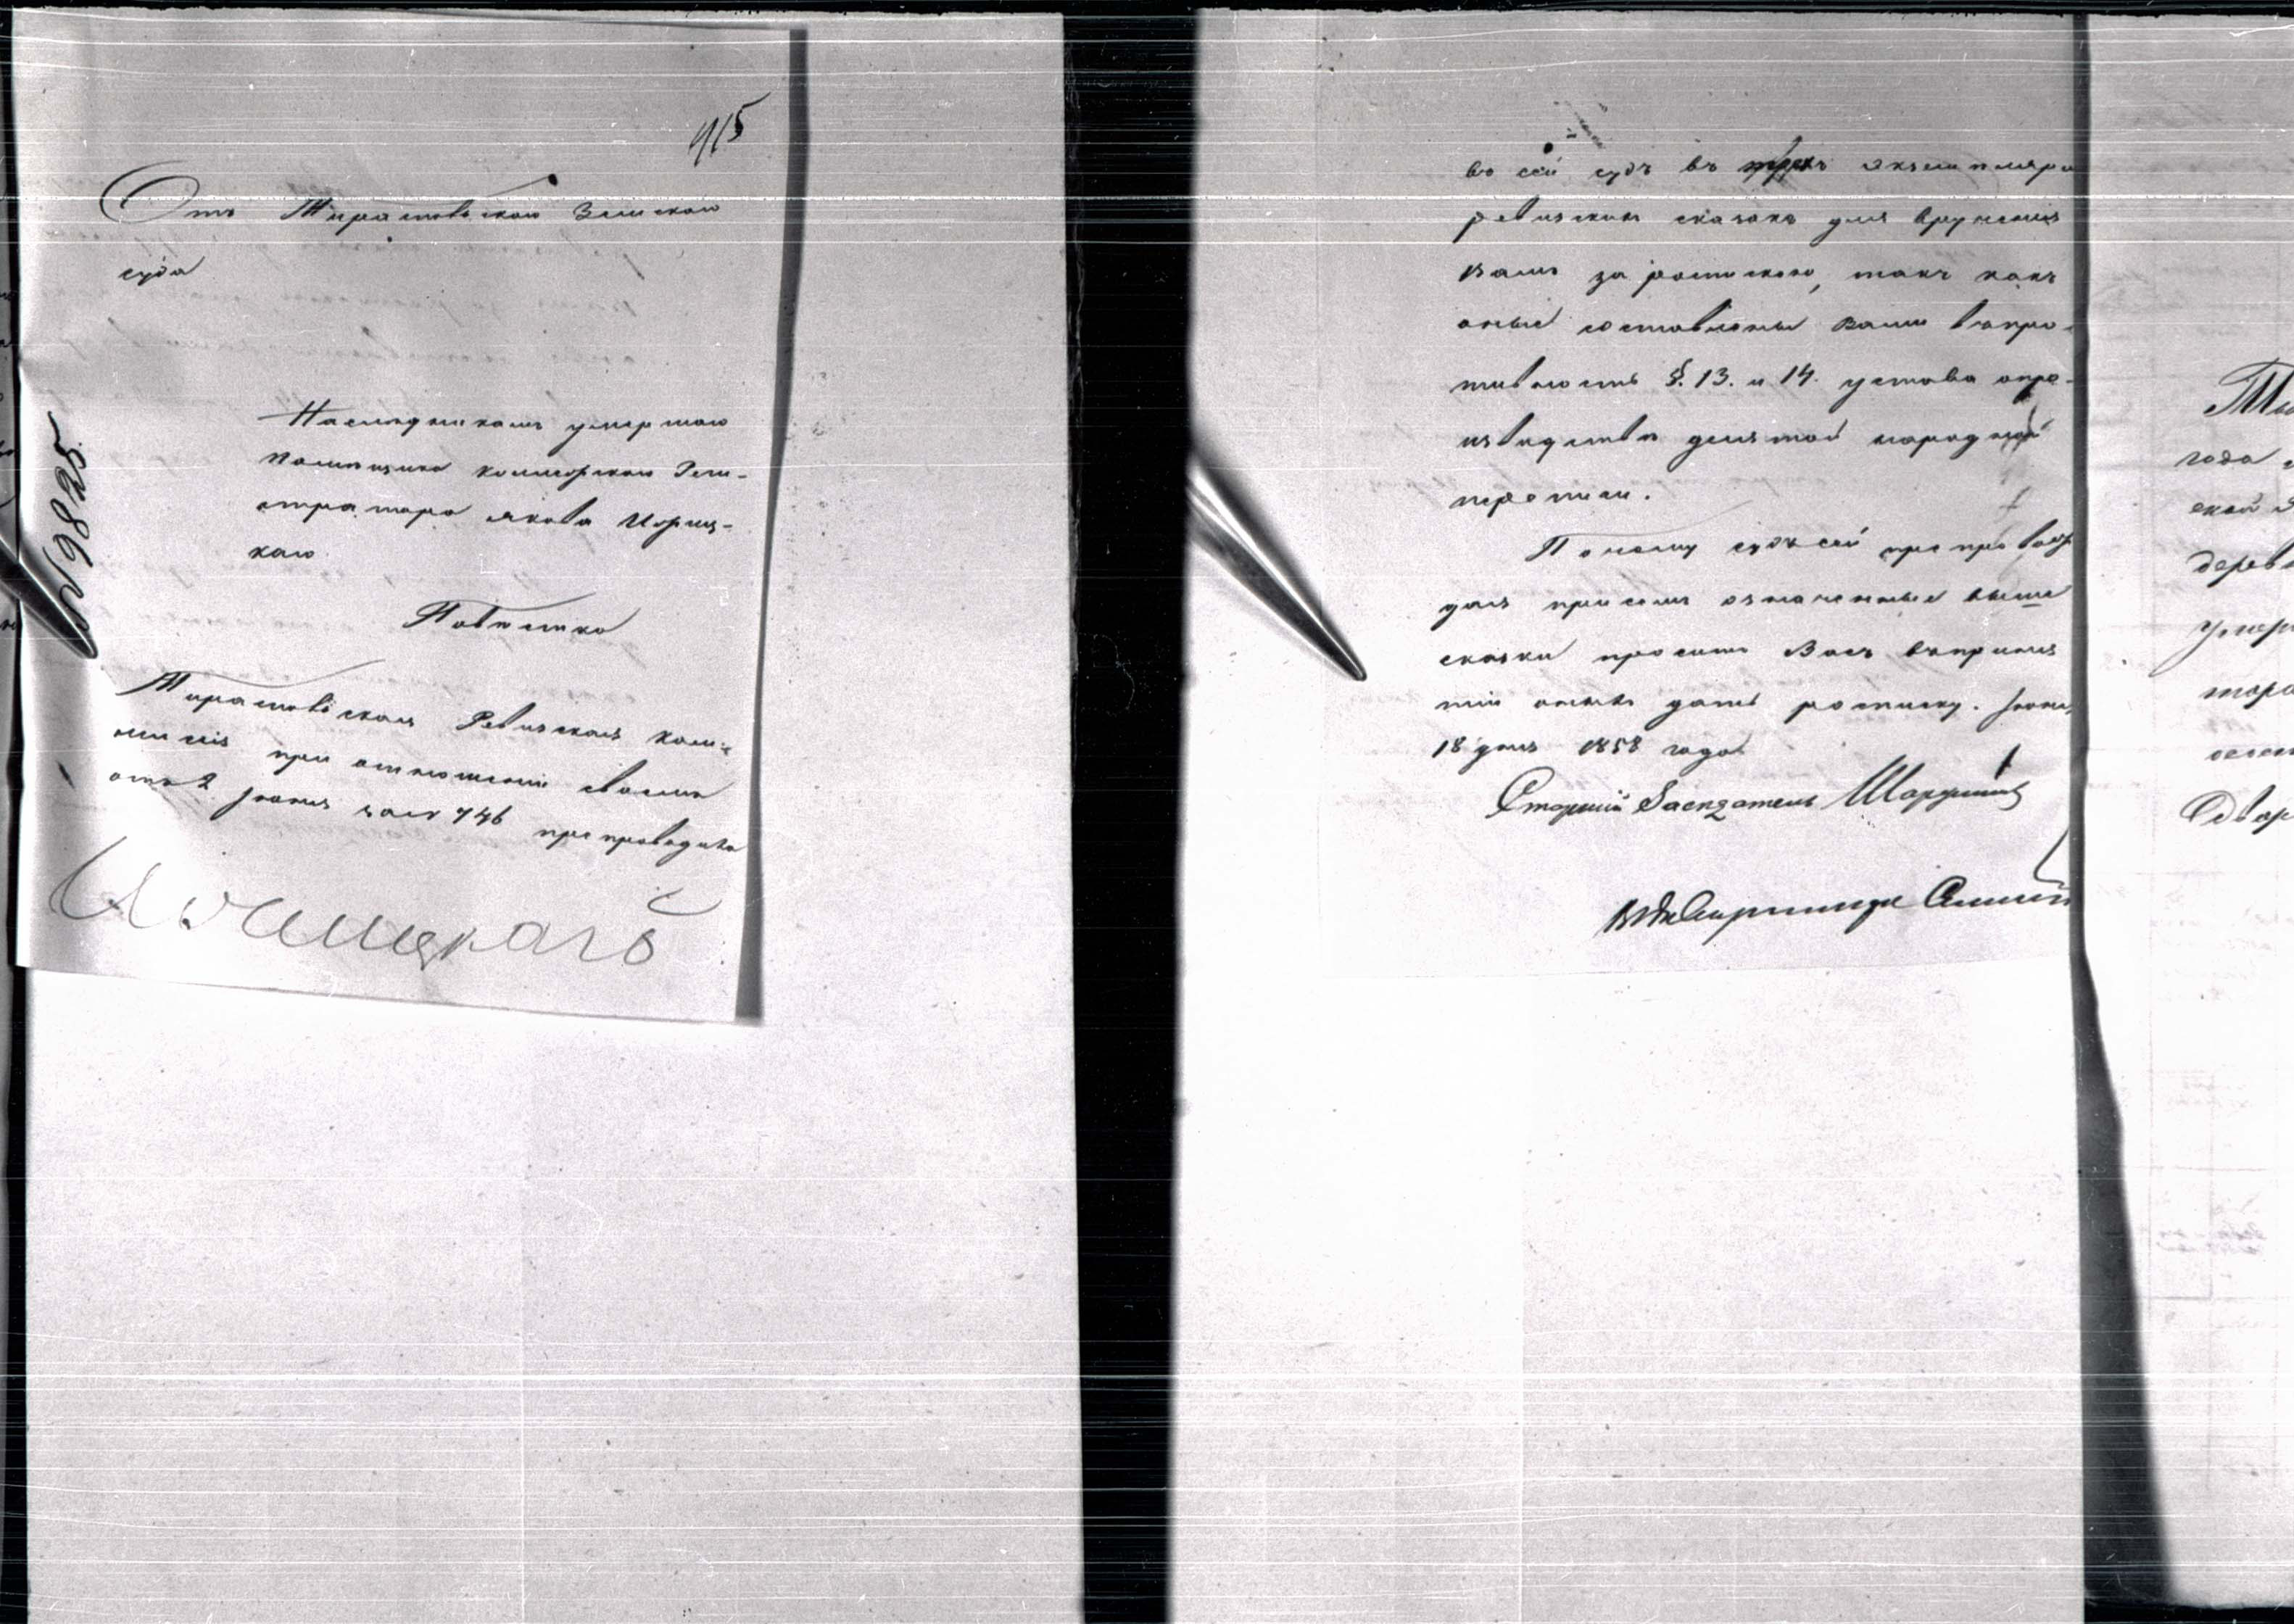 415
Отъ Тираспольскаго Земскаго
суда
№ 9825.
Наслѣдникамъ умершаго
помѣщика коллежскаго Реги-
стратора Якова
каго
Повѣстка
Тираспольская Ревизская Ком-
мисія при отношеніи своемъ
отъ 2 Іюня за № 746 препроводила
въ сей судъ въ трехъ экземпляра
ревизскихъ сказокъ для врученія
Вамъ за роспискою, такъ какъ
оные составлены Вами вопро-
тивность §. 13. и 14. устава опро-
изводствѣ десятой народной
переписи.
Почему судъ сей препровож
дая присемъ означенные выше
сказки проситъ Васъ въ приня
тіи оныхъ дать росписку. Іюня
18 дня 1858 года
Старшій Засѣдатель
года
ской
дерев
умер
тора
Двор